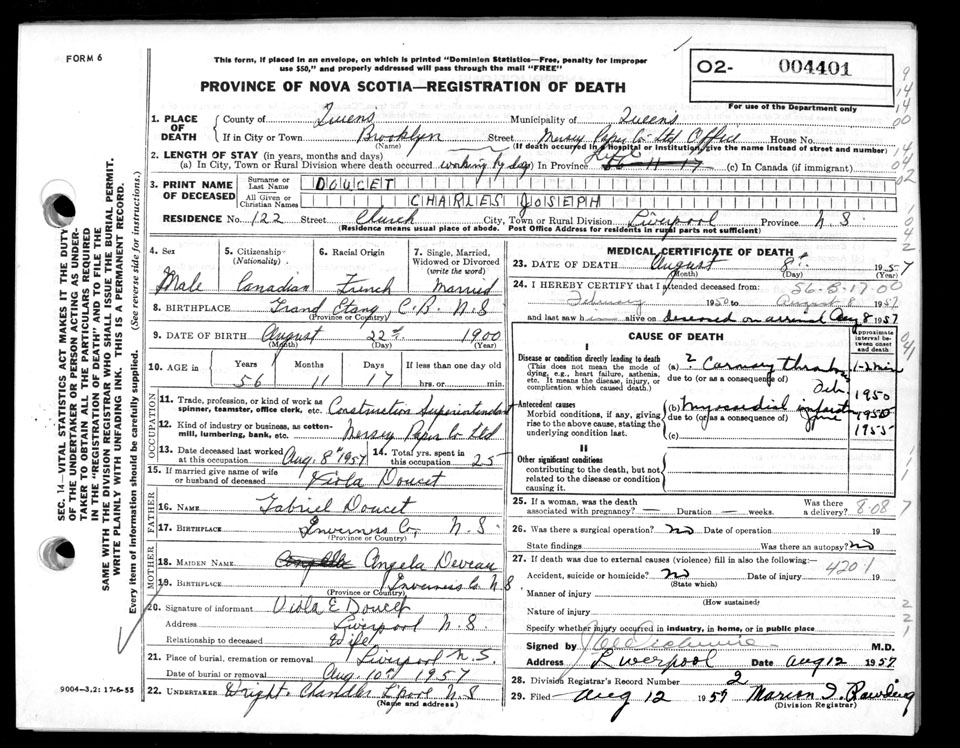 FORM 6
This form, if placed in an envelope, on which is printed "Dominion Statistics—Free, penalty for improper
use $50," and properly addressed will pass through the mail "FREE"
PROVINCE OF NOVA SCOTIA—REGISTRATION OF DEATH
02- 004401
For use of the Department only
1. PLACE OF DEATH County of Queens Municipality of Queens
If in City or Town Brooklyn Street Mersey Paper Co Ltd Office House No.
(Name) (If death occurred in a hospital or institution, give the name instead of street and number)
2. LENGTH OF STAY (in years, months and days)
(a) In City, Town or Rural Division where death occurred working by day (b) In Province Life 56-11-17 (c) In Canada (if immigrant)
3. PRINT NAME OF DECEASED Surname or Last Name DOUCET
All Given or Christian Names CHARLES JOSEPH
RESIDENCE No. 122 Street Church City, Town or Rural Division Liverpool Province N S
(Residence means usual place of abode. Post Office Address for residents in rural parts not sufficient)
4. Sex 5. Citizenship (Nationality) 6. Racial Origin 7. Single, Married, Widowed or Divorced (write the word)
Male Canadian French Married
8. BIRTHPLACE Grand Etang C.B. N S
(Province or Country)
9. DATE OF BIRTH August 22nd 1900
(Month) (Day) (Year)
10. AGE in Years Months Days If less than one day old
56 11 17 hrs. or min.
OCCUPATION
11. Trade, profession, or kind of work as spinner, teamster, office clerk, etc. Construction Superintendant
12. Kind of industry or business, as cotton-mill, lumbering, bank, etc. Mersey Paper Co Ltd
13. Date deceased last worked at this occupation Aug. 8th 1957 14. Total yrs. spent in this occupation 25
15. If married give name of wife or husband of deceased Viola Doucet
FATHER
16. Name Gabriel Doucet
17. Birthplace Inverness Co, N S
(Province or Country)
MOTHER
18. MAIDEN NAME Angela Deveau
19. BIRTHPLACE Inverness Co. N S
(Province or Country)
20. Signature of informant Viola E Doucet
Address Liverpool N S.
Relationship to deceased Wife
21. Place of burial, cremation or removal Liverpool N.S.
Date of burial or removal Aug. 10th 1957
22. UNDERTAKER Wright & Chandler L'pool N S
(Name and address)
MEDICAL CERTIFICATE OF DEATH
23. DATE OF DEATH August 8th 1957
(Month) (Day) (Year)
24. I HEREBY CERTIFY that I attended deceased from: 56-5-17-00
1950 to August 8 1957
and last saw him alive on deceased on arrival Aug 8 1957
CAUSE OF DEATH
Approximate interval between onset and death
I
Disease or condition directly leading to death
(This does not mean the mode of dying, e.g., heart failure, asthenia, etc. It means the disease, injury, or complication which caused death.)
(a) ? Coronary thrombosis 1-2 min
due to (or as a consequence) of
Antecedent causes
Morbid conditions, if any, giving rise to the above cause, stating the underlying condition last.
(b) Myocardial
due to (or as a consequence) of
1950
1955
(c)
II
Other significant conditions
contributing to the death, but not related to the disease or condition causing it.
25. If a woman, was the death associated with pregnancy? — Duration — weeks. Was there a delivery? 8-08
26. Was there a surgical operation? no Date of operation 19
State findings Was there an autopsy? no
27. If death was due to external causes (violence) fill in also the following:
4201
Accident, suicide or homicide? no Date of injury 19
(State which)
Manner of injury
(How sustained)
Nature of injury
Specify whether injury occurred in industry, in home, or in public place
Signed by M.D.
Address Liverpool Date Aug 12 1957
28. Division Registrar's Record Number 2
29. Filed Aug 12 1957 Marion I. Rawding
(Division Registrar)
SEC. 14—VITAL STATISTICS ACT MAKES IT THE DUTY
OF THE UNDERTAKER OR PERSON ACTING AS UNDER-
TAKER TO OBTAIN ALL THE PARTICULARS REQUIRED
IN THE "REGISTRATION OF DEATH" AND TO FILE THE
SAME WITH THE DIVISION REGISTRAR WHO SHALL ISSUE THE BURIAL PERMIT.
WRITE PLAINLY WITH UNFADING INK. THIS IS A PERMANENT RECORD.
Every item of information should be carefully supplied. (See reverse side for instructions.)
9004—3.2: 17-6-55